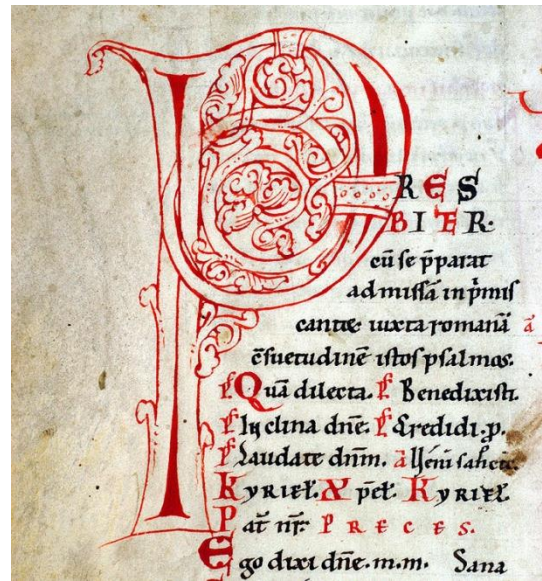 PRES
BITER·
cū se p̄parat
ad missā in p̄mis
cantet iuxta romanā
c̄suetudinē istos psalmos.
ps̄ Quā dilecta. ps̄ Benedixisti.
ps̄ Inclina dn̄e. ps̄ Credidi. p.
ps̄ Laudate dn̄m. a
KYRIEL̄. X̄ pēl. KYRIEL̄.
Pat̄ nr̄. PRECES.
Ego dixi dn̄e. m. m. Sana